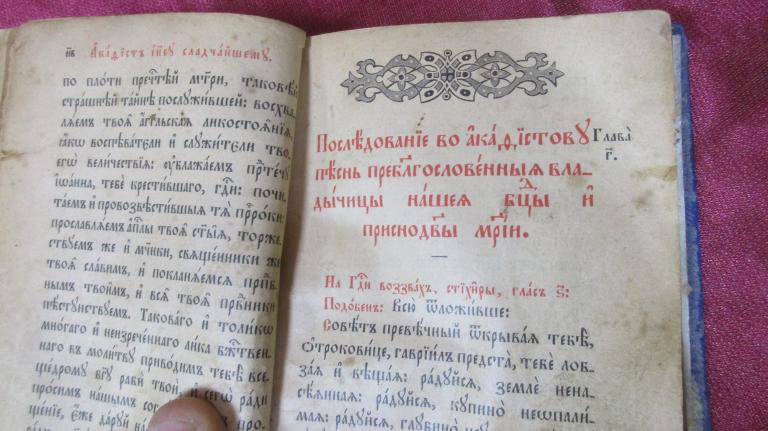 н҃в Ака́ѳїстъ І҆и҃су сладча́йшему.
по пло́ти пречⷭ҇тѣй мт҃ри, таковѣ́й
стра́шнѣй та́йнѣ послужи́вшей: восхва-
ля́емъ твоѧ̑ а҆́гг҃льскаѧ ликостоѧ̑нїѧ,
ꙗ҆́кѡ воспѣва́тели и҆ служи́тели тво-
егѡ̀ вели́чествїѧ: ᲂу҆блажа́емъ прⷣте́чꙋ
і҆ѡа́нна, тебѐ крести́вшаго, гдⷭ҇и: почи-
та́емъ и҆ провозвѣсти́вшыѧ тѧ̀ прⷪ҇ро́ки:
прославлѧ́емъ а҆пⷭ҇лы твоѧ̑ ст҃ы̑ѧ, торже-
ствꙋ́емъ же и҆ мч҃ники, свѧще́нники же
твоѧ̑ сла́вимъ, и҆ покланѧ́емсѧ прпⷣб-
нымъ твои̑мъ, и҆ всѧ̑ твоѧ̑ првⷣники
пѣстꙋ́нствꙋемъ. Такова́го и҆ толи́кѡ
мно́гаго и҆ неизрече́ннаго ли́ка бж҃тве́н-
наго въ моли́твꙋ приво́димъ тебѣ̀ все-
ще́дромꙋ бг҃ꙋ рабѝ твоѝ, и҆ сегѡ̀ ра́ди
про́симъ на́шымъ
ще́нїе, є҆́же да́рꙋй
Послѣ́дованїе во а҆ка́ѳїстовꙋ
пѣ́снь преблгⷭ҇лове́нныѧ вла-
ды́чицы на́шеѧ бцⷣы и҆
приснодв҃ы мр҃і́и.
Глава̀
г҃.
На Гдⷭ҇и воззва́хъ, стїхи̑ры, гла́съ ѕ҃:
Подо́бенъ: Всю̀ ѿложи́вше:
Совѣ́тъ превѣ́чный ѿкрыва́ѧ тебѣ̀,
ѻ҆трокови́це, гаврїи́лъ предста̀, тебѐ лоб-
за́ѧ и҆ вѣща́ѧ: ра́дꙋйсѧ, землѐ нена-
сѣ́ѧннаѧ: ра́дꙋйсѧ, кꙋпино̀ неѡпали́-
маѧ: ра́дꙋйсѧ, глꙋбино̀